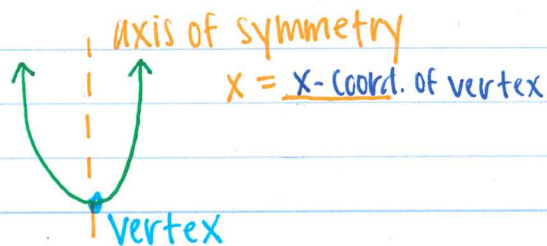 axis of symmetry
x = x-coord. of vertex
vertex